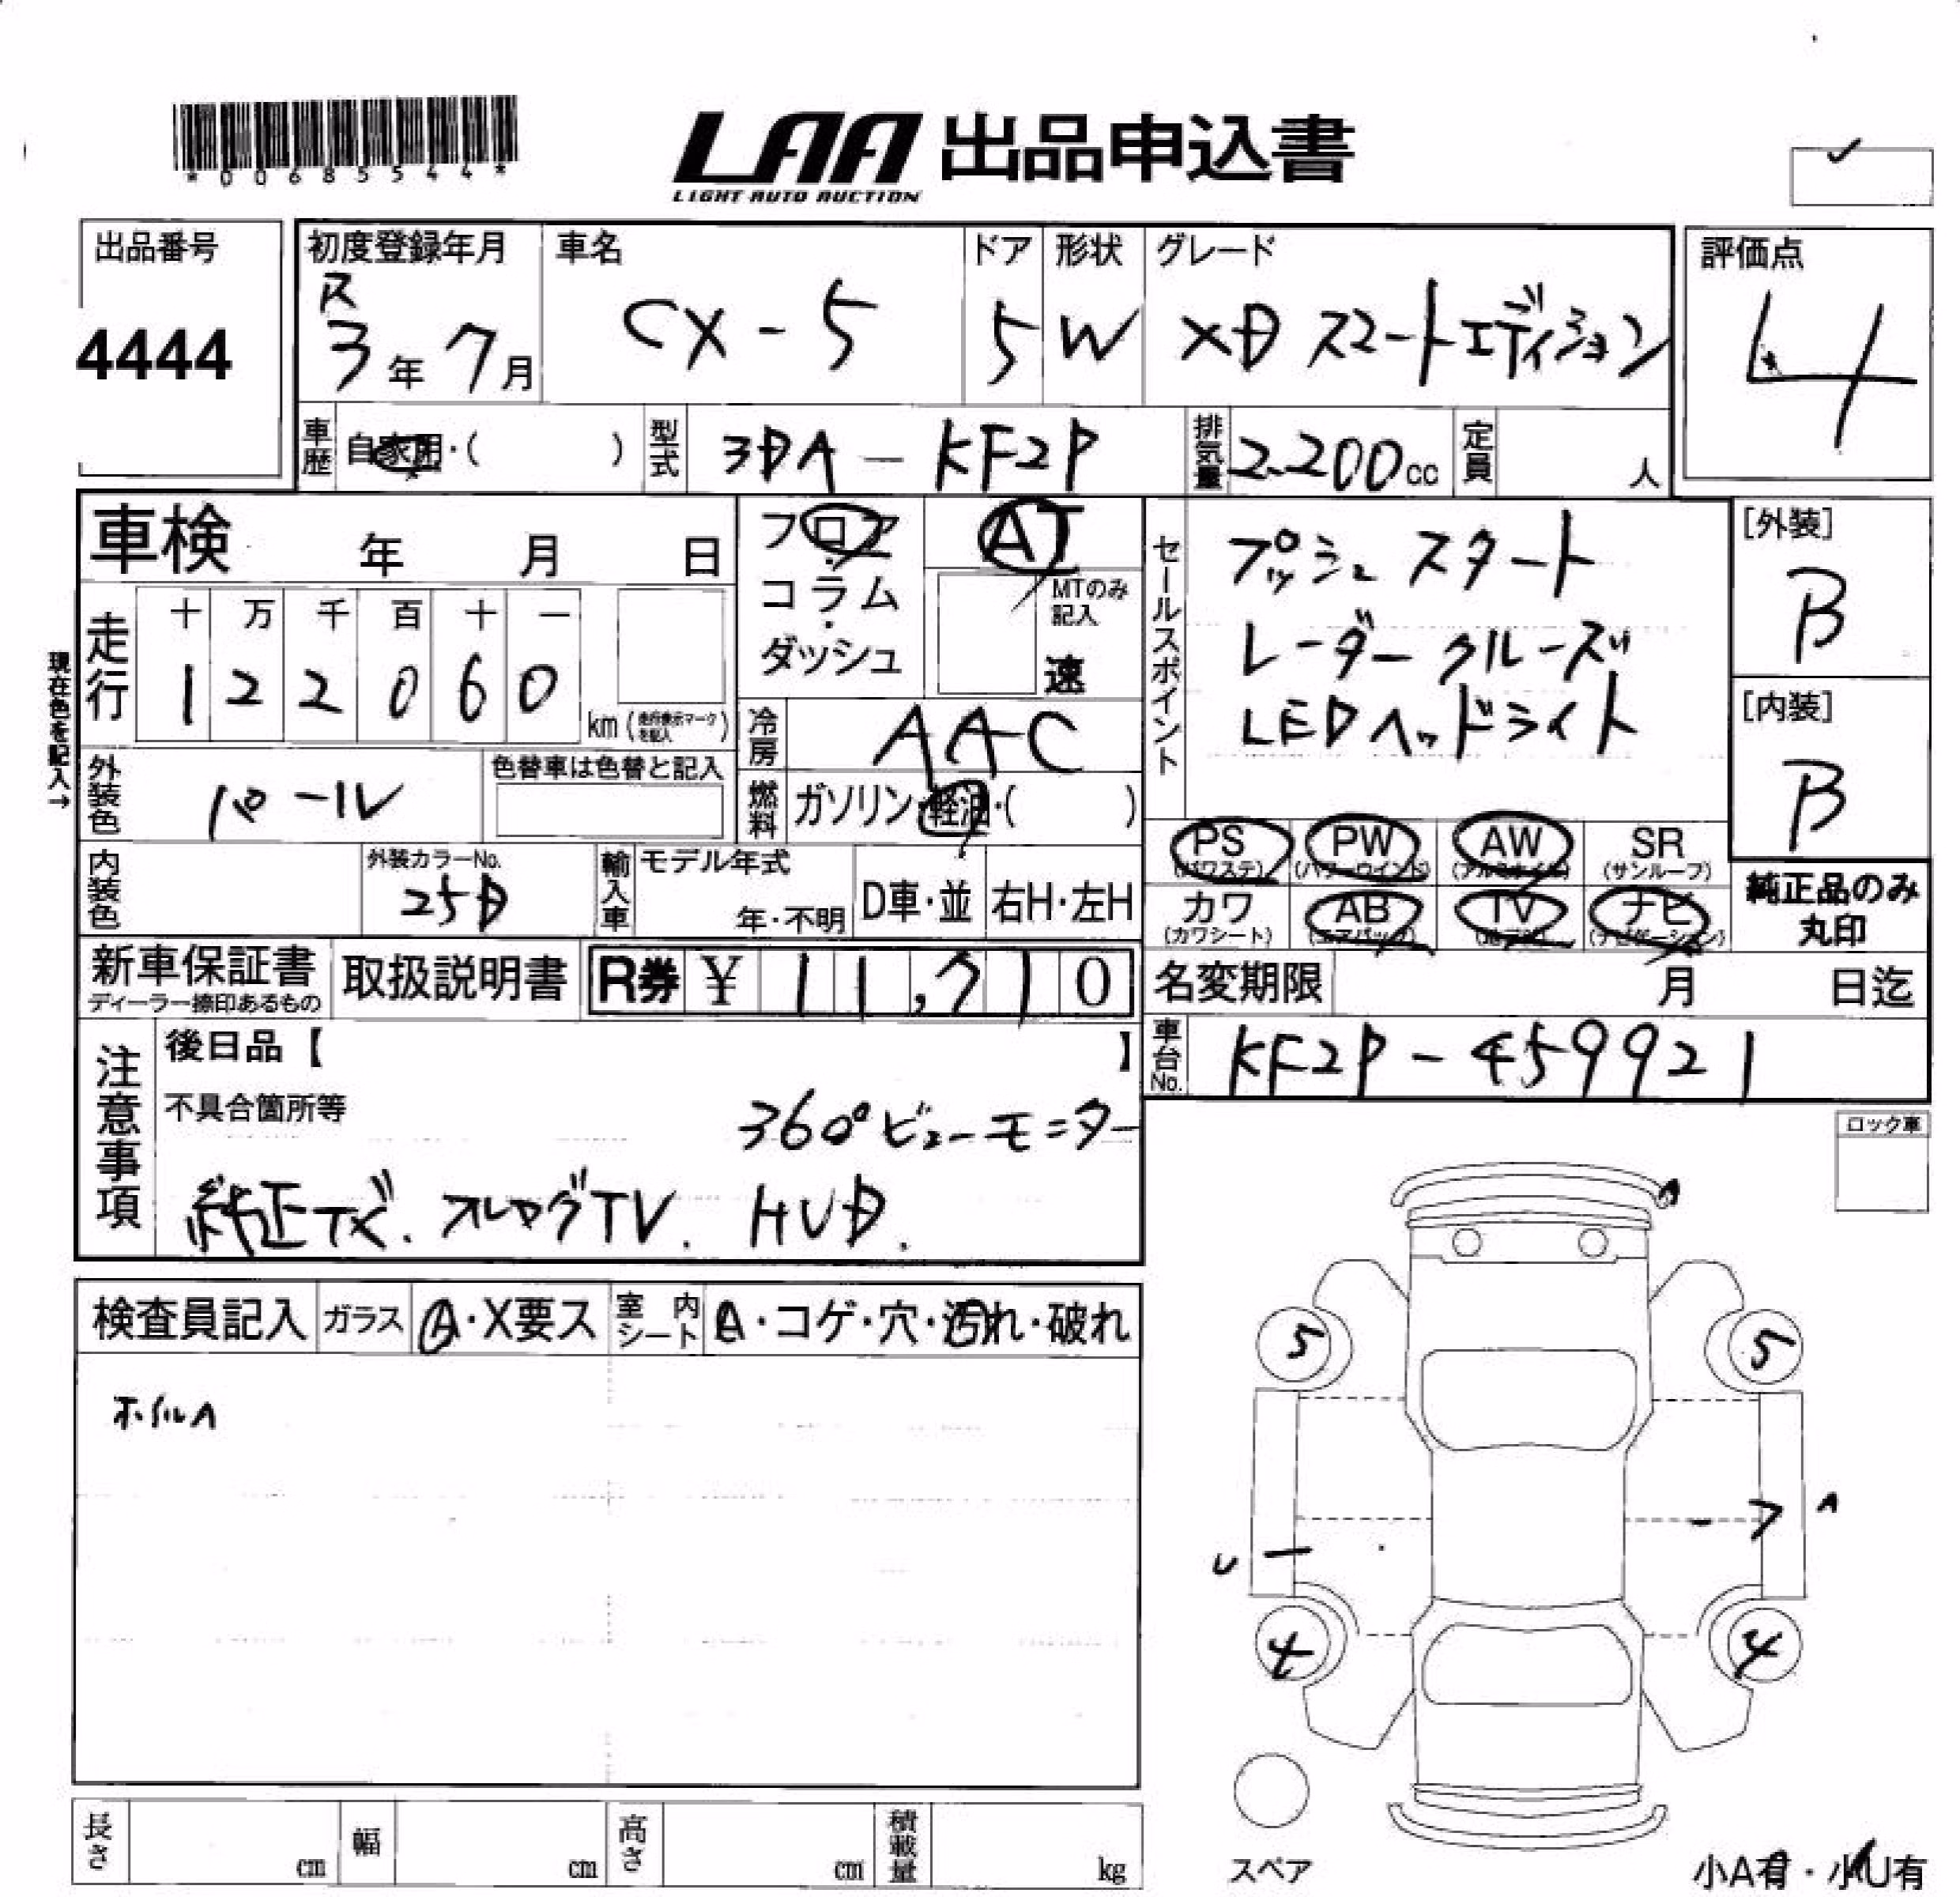 *00685544*
LAA 出品申込書
LIGHT AUTO AUCTION
出品番号
4444
初度登録年月
R
3年 7月
車名
CX-5
ドア
5
形状
W
グレード
XD スマートエディション
評価点
4
車歴 自家用・( )
型式 3DA-KF2P
排気量 2.200cc
定員 人
車検 年 月 日
フロア
コラム
ダッシュ
AT
MTのみ
記入
速
セールスポイント
プッシュスタート
レーダークルーズ
LEDヘッドライト
[外装]
B
[内装]
B
現在色を記入→
走行
十 万 千 百 十 一
1 2 2 0 6 0
km(走行表示マークを記入)
冷房 AAC
外装色 パール
色替車は色替と記入
燃料 ガソリン・軽油・( )
PS (パワステ)
PW (パワーウインド)
AW (アルミホイル)
SR (サンルーフ)
内装色
外装カラーNo.
25D
輸入車
モデル年式
年・不明
D車・並
右H・左H
カワ (カワシート)
AB (エアバッグ)
TV (地デジ)
ナビ (ナビゲーション)
純正品のみ
丸印
新車保証書
ディーラー捺印あるもの
取扱説明書
R券 ¥ 11,710
名変期限 月 日迄
車台No. KF2P-459921
注意事項
後日品【 】
不具合箇所等
360°ビューモニター
純正ナビ. フルセグTV. HUD.
ロック車
検査員記入
ガラス A・X要ス
室内シート A・コゲ・穴・汚れ・破れ
ホイルA
A
5 5
A
U
4 4
スペア
小A有・小U有
長さ cm
幅 cm
高さ cm
積載量 kg